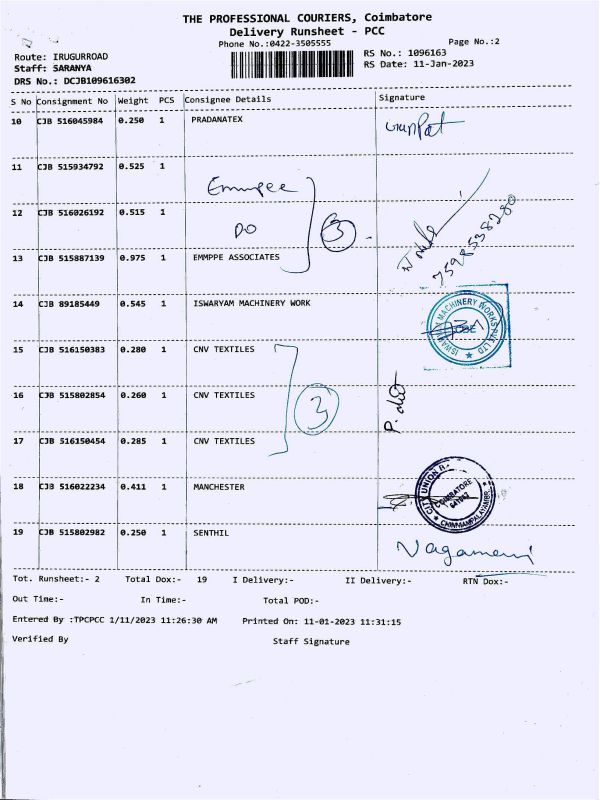 THE PROFESSIONAL COURIERS, Coimbatore
Delivery Runsheet - PCC
Phone No.:0422-3505555
Page No.:2
Route: IRUGURROAD
RS No.: 1096163
Staff: SARANYA
RS Date: 11-Jan-2023
DRS No.: DCJB109616302
S No Consignment No Weight PCS Consignee Details Signature
10 CJB 516045984 0.250 1 PRADANATEX
11 CJB 515934792 0.525 1
Emmpee
12 CJB 516026192 0.515 1
DO
3
7598538280
13 CJB 515887139 0.975 1 EMMPPE ASSOCIATES
14 CJB 89185449 0.545 1 ISWARYAM MACHINERY WORK
ISWARYAM MACHINERY WORKS PVT LTD
CBE
15 CJB 516150383 0.280 1 CNV TEXTILES
16 CJB 515802854 0.260 1 CNV TEXTILES
3
17 CJB 516150454 0.285 1 CNV TEXTILES
18 CJB 516022234 0.411 1 MANCHESTER
CITY UNION B
COIMBATORE
CHINNIAMPALAYAM
19 CJB 515802982 0.250 1 SENTHIL
Nagamani
Tot. Runsheet:- 2 Total Dox:- 19 I Delivery:- II Delivery:- RTN Dox:-
Out Time:- In Time:- Total POD:-
Entered By :TPCPCC 1/11/2023 11:26:30 AM Printed On: 11-01-2023 11:31:15
Verified By Staff Signature